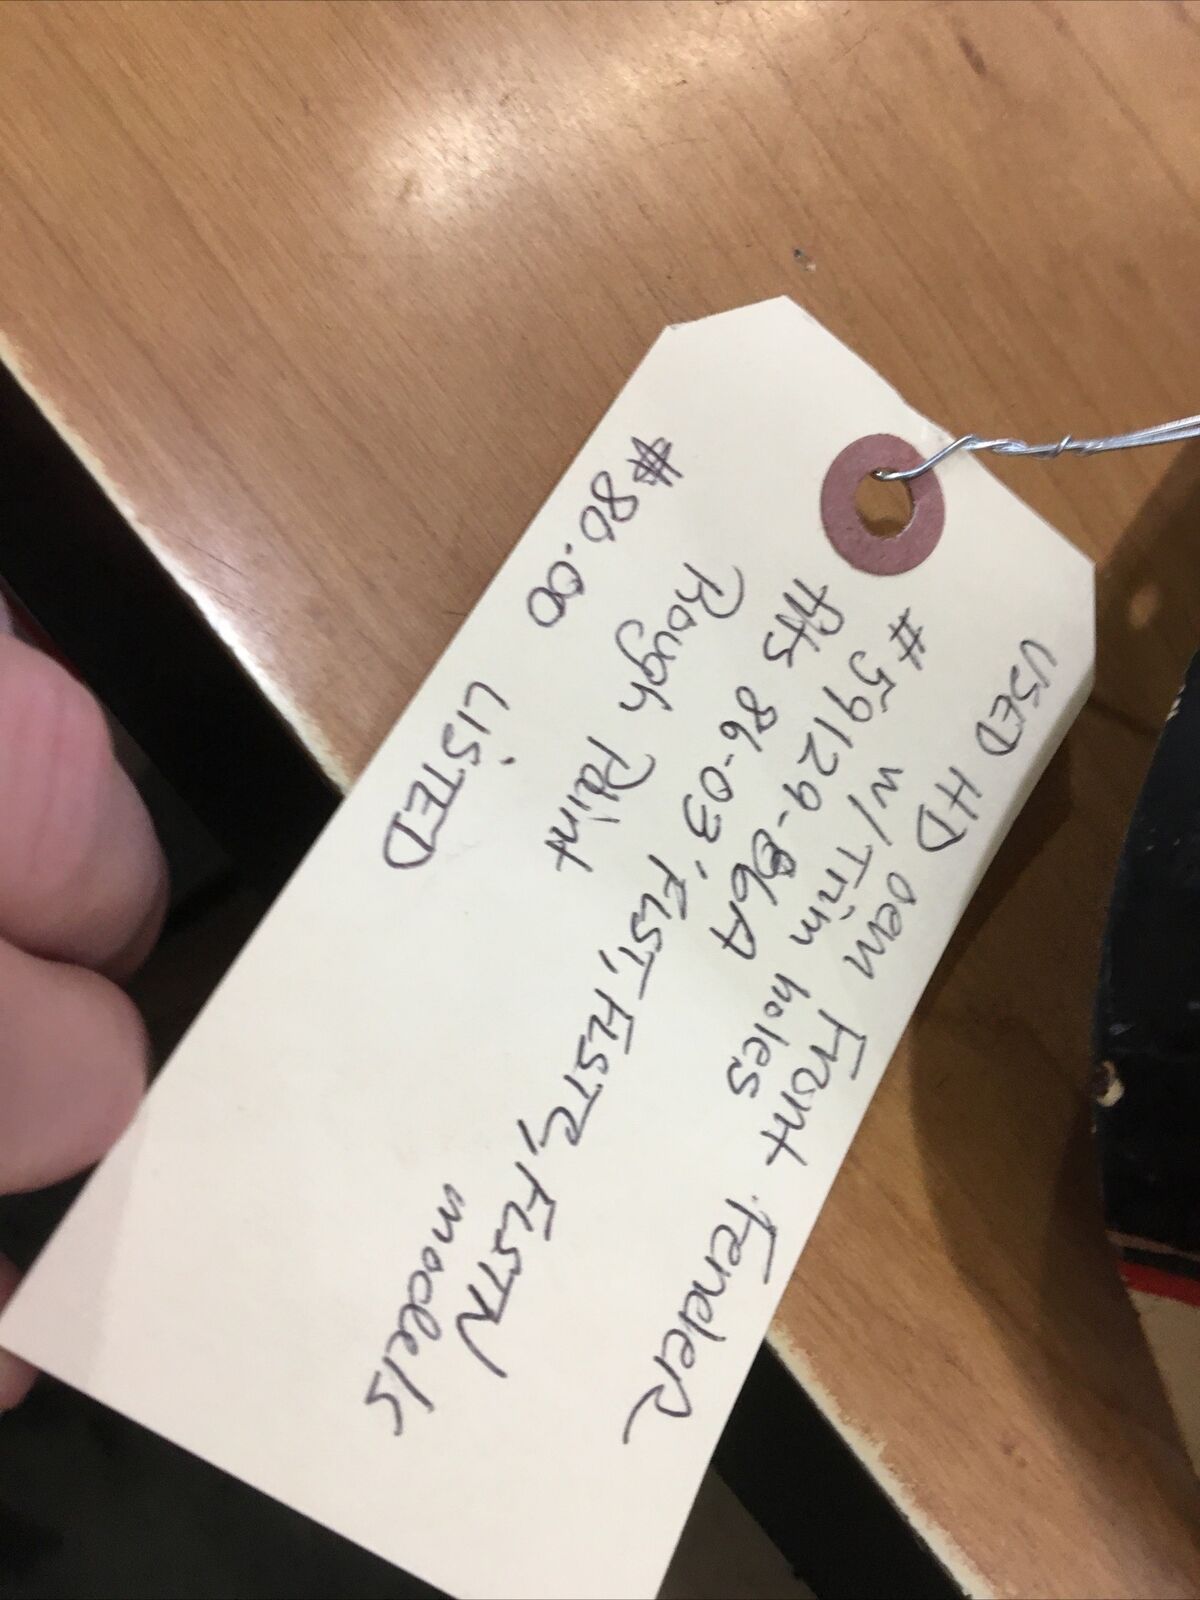 USED HD oem Front FendeR
#59129-86A
w/Trim holes
fits 86-03' FLST, FLSTC, FLSTN
models
Rough Paint
$80.00
LISTED